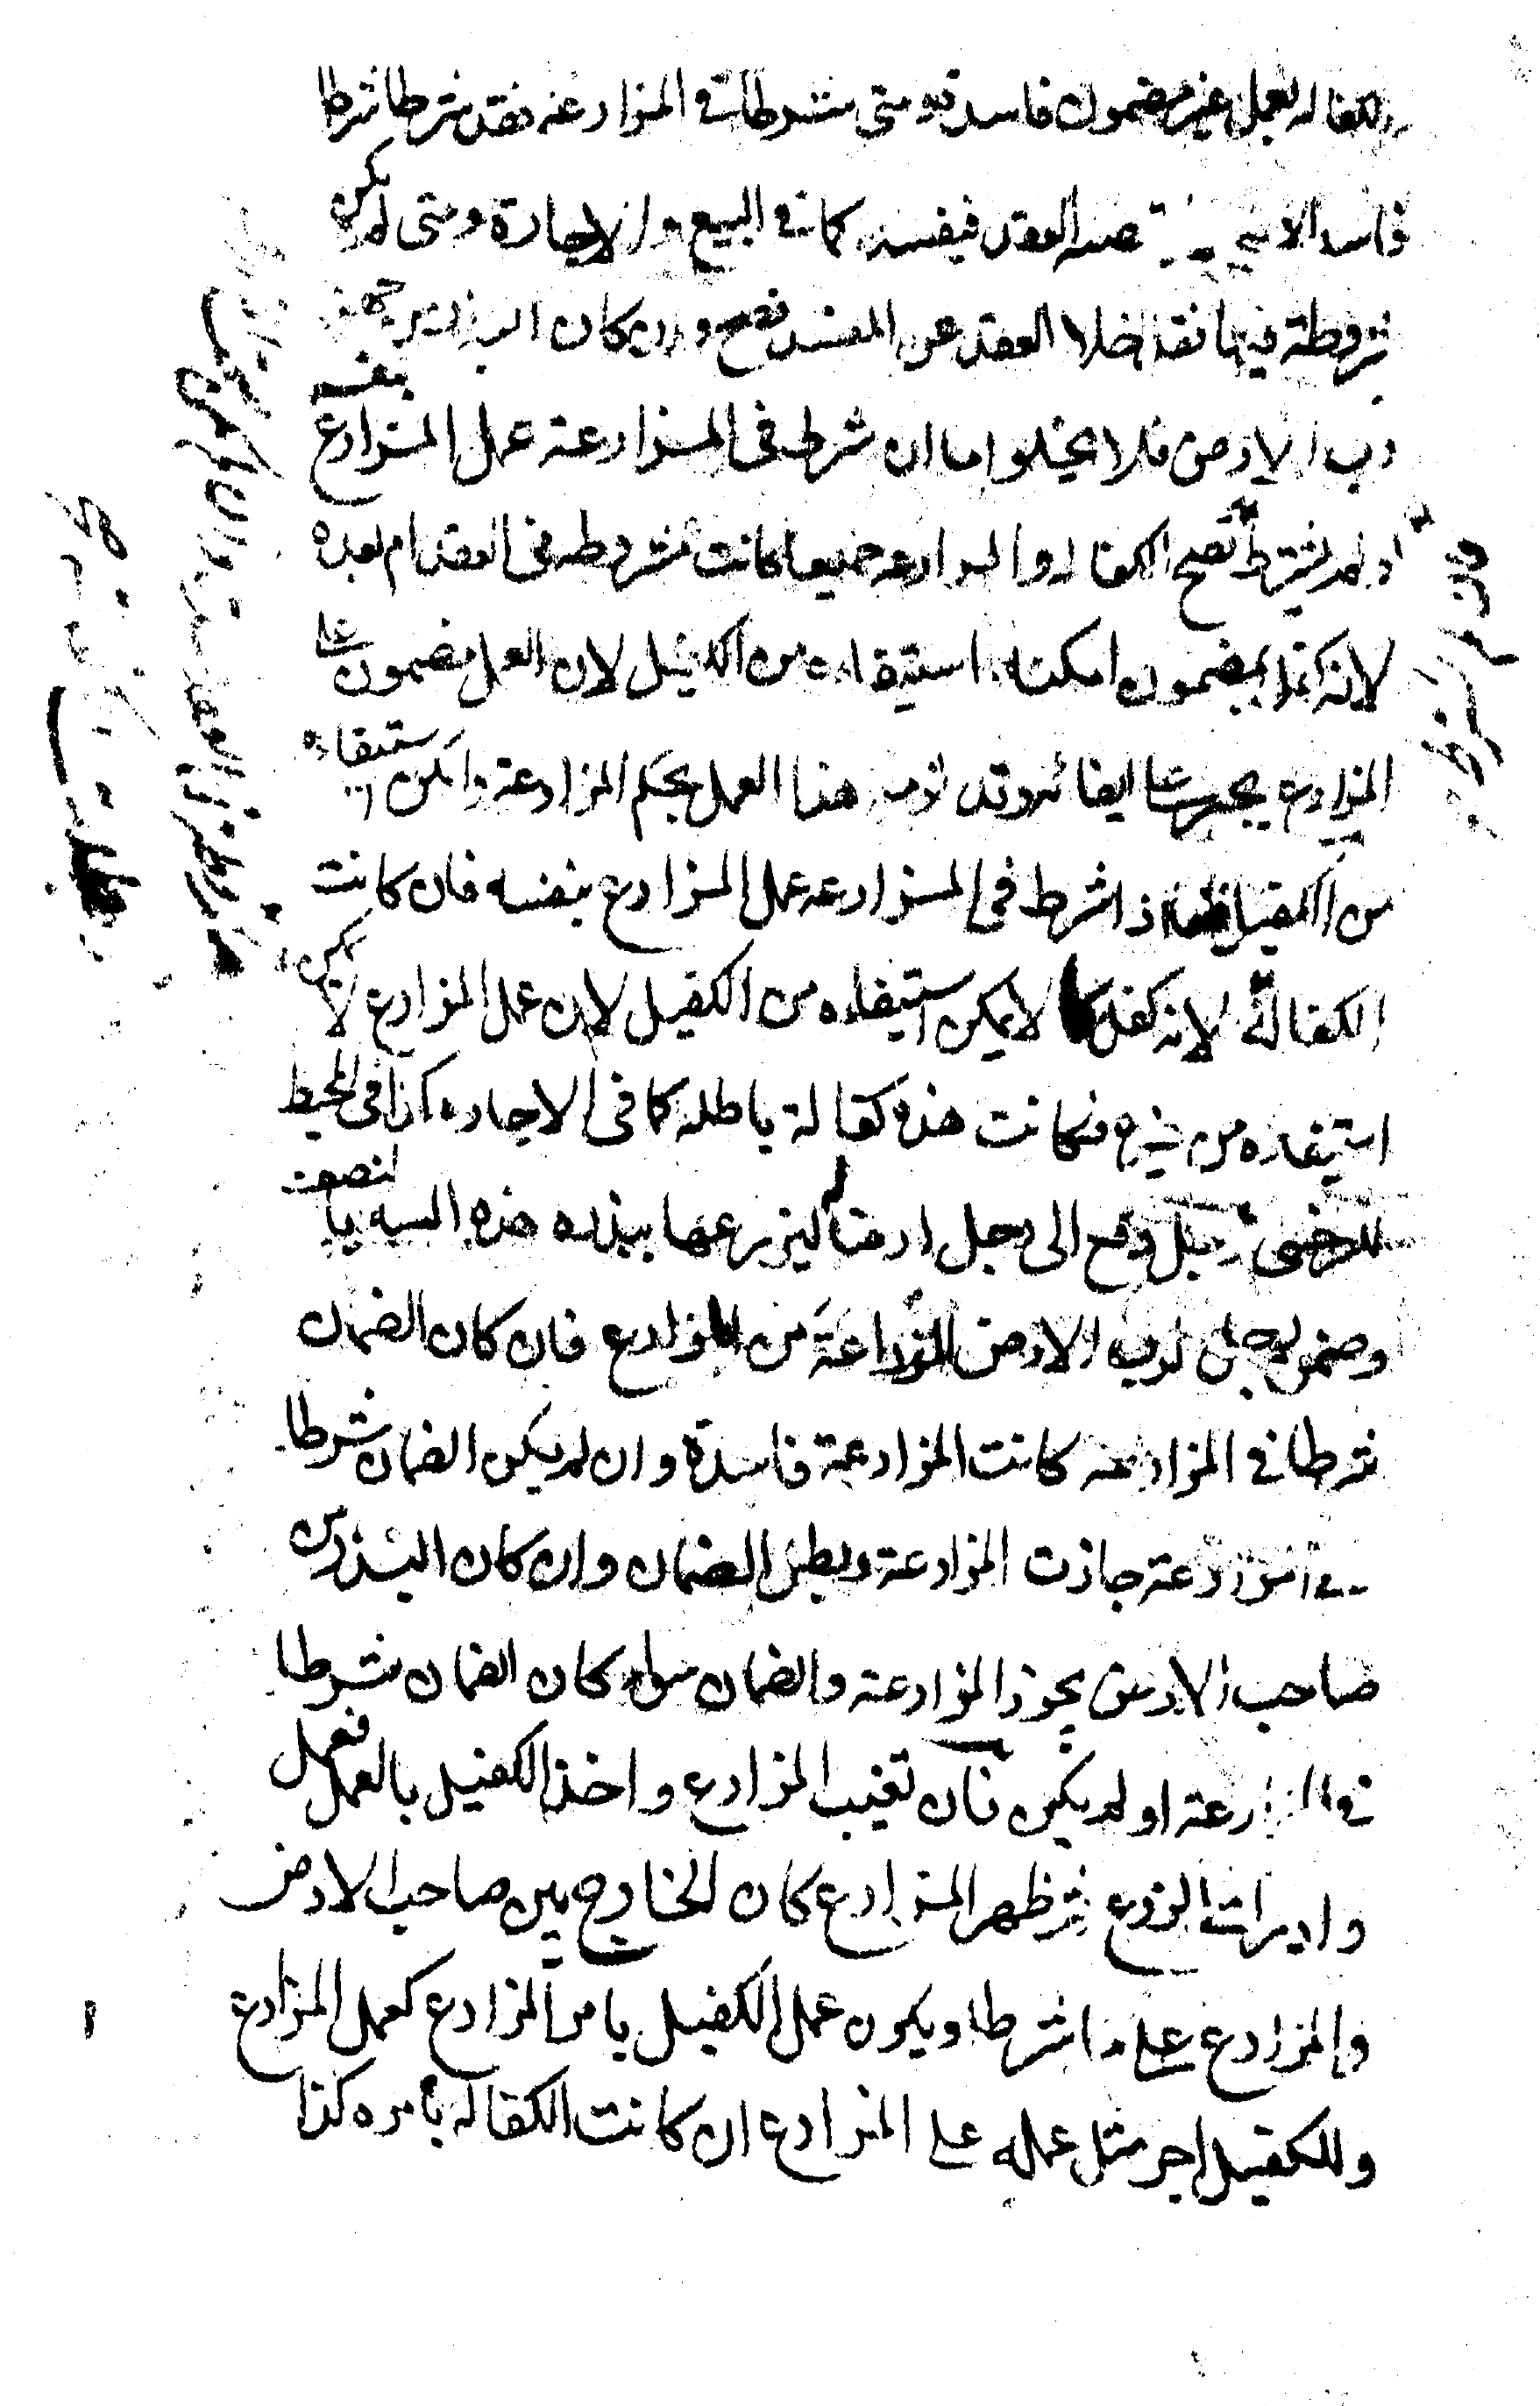 الكفالة بعمل غير مضمون فاسدة ومتى شرطات في المزارعة فقد شرطا شرطا
فاسدا العقد فيفسد كما في البيع والاجارة ومتى لم يكن
مشروطة فيها فقد خلا العقد عن المفسد فصح وان كان البذر من جهة
رب الارض فلا يخلوا اما ان شرط فى المزارعة عمل المزارع بنفسه
او لم يشترط تصح الكفالة والمزارعة جميعا كانت مشروطه فى العقد ام بعده
لانه كفل بمضمون امكنه استيفاءه من الكفيل لان العمل مضمون على
المزارع يجبر على ايفائه وقد لزمه هذا العمل بحكم المزارعة وامكن استيفاءه
من الكفيل اذا شرط فى المزارعه عمل المزارع بنفسه فان كانت
الكفالة لانه كفل لا يمكن استيفاءه من الكفيل لان عمل المزارع لا يمكن
استيفاءه من غيره فكانت هذه كفالة باطله كما فى الاجاره كذا فى المحيط
للرخسى رجل دفع الى رجل ارضا ليزرعها ببذره هذه السنه بالنصف
وضمن رجل لرب الارض الزراعة من المزارع فان كان الضمان
شرطا فى المزارعه كانت المزارعة فاسدة وان لم يكن الضمان شرطا
فى المزارعة جازت المزارعة وبطل الضمان وان كان البذر من
صاحب الارض يجوز المزارعة والضمان سواء كان الضمان شرطا
فى المزارعة او لم يكن فان تغيب المزارع واخذ الكفيل بالعمل فعمل
وادراك الزرع ثم ظهر المزارع كان الخارج بين صاحب الارض
والمزارع على ما شرطا ويكون عمل الكفيل بامر المزارع كعمل المزارع
وللكفيل اجر مثل عمله على المزارع ان كانت الكفاله بامره كذا